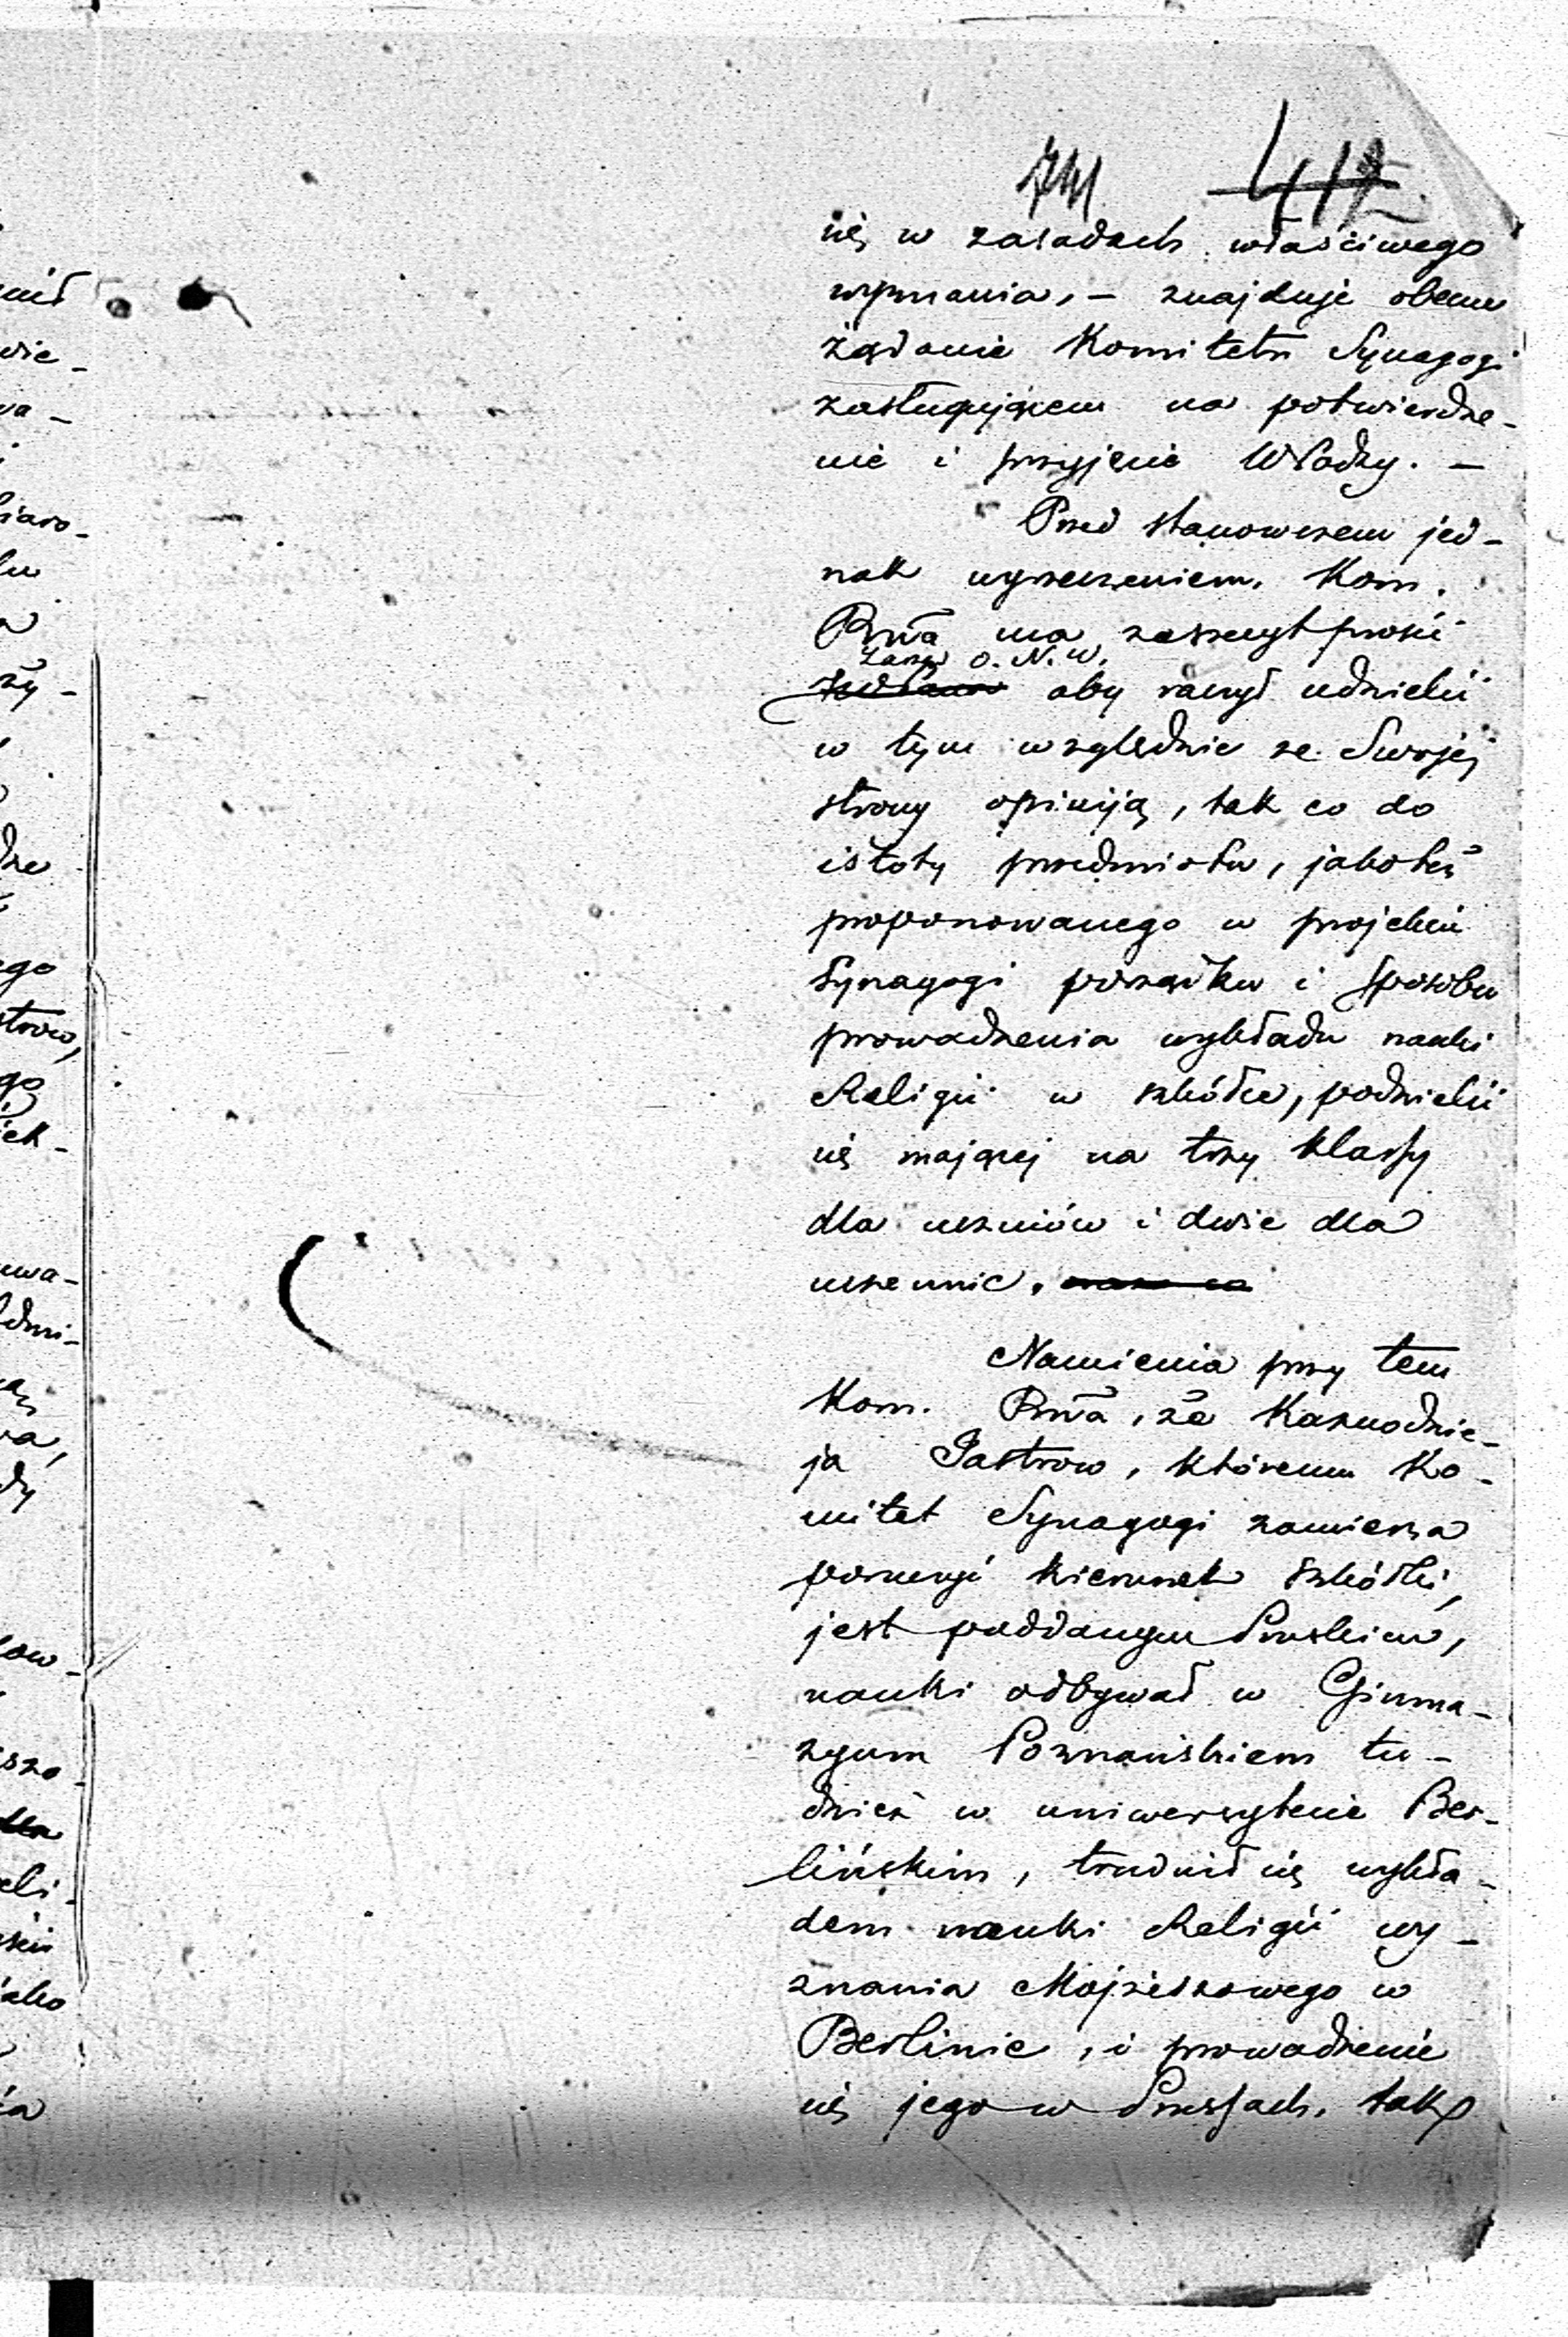 412
się w zasadach właściwego
wyznania, — znajduje obecne
żądanie Komitetu Synagogi
zasługującem na potwierdze-
nie i przyjęcie Władzy. —
Przed stanowczem jed-
nak wyrzeczeniem, Kom.
Rwa ma zaszczyt prosić
Zarząd O. N. W.
aby raczył udzielić
w tym względzie ze Swojej
strony opiniją, tak co do
istoty przedmiotu, jakoteż
proponowanego w projekcie
Synagogi porządku i sposobu
prowadzenia wykładu nauki
Religii w szkółce, podzielić
się mającej na trzy klassy
dla uczniów i dwie dla
uczennic.
Namienia przy tem
Kom. Rwa, że Kaznodzie-
ja Jastrow, któremu Ko-
mitet Synagogi zamierza
poruczyć kierunek szkółki,
jest poddanym Pruskim,
nauki odbywał w Gimna-
zyum Poznańskiem tu-
dzież w uniwersytecie Ber-
lińskim, trudnił się wykła-
dem nauki Religii wy-
znania Mojżeszowego w
Berlinie, i prowadzenie
się jego w Prussach, tak